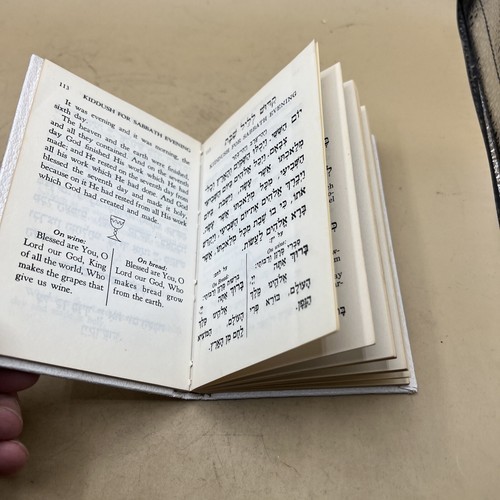 113
KIDDUSH FOR SABBATH EVENING
It was evening and it was morning, the
sixth day.
The heaven and the earth were finished
and all they contained. And on the seventh
day God finished His work which He had
made; and He rested on the seventh day from
all his work which He had done. And God
blessed the seventh day and made it holy,
because on it He had rested from all His work
which God had created and made.
On wine:
Blessed are You, O
Lord our God, King
of all the world, Who
makes the grapes that
give us wine.
On bread:
Blessed are You, O
Lord our God, Who
makes bread grow
from the earth.
קדוש לליל שבת
KIDDUSH FOR SABBATH EVENING
יום הששי. ויכלו השמים והארץ וכל
צבאם. ויכל אלהים ביום השביעי
מלאכתו אשר עשה. וישבת ביום
השביעי מכל מלאכתו אשר עשה.
ויברך אלהים את יום השביעי. ויקדש
אתו. כי בו שבת מכל מלאכתו אשר
ברא אלהים לעשות.
על יין:
On wine:
סברי מרנן ורבותי:
ברוך אתה יי
אלהינו מלך
העולם. בורא פרי
הגפן:
על לחם:
On Bread:
ברוך אתה יי
אלהינו מלך
העולם. המוציא
לחם מן הארץ.